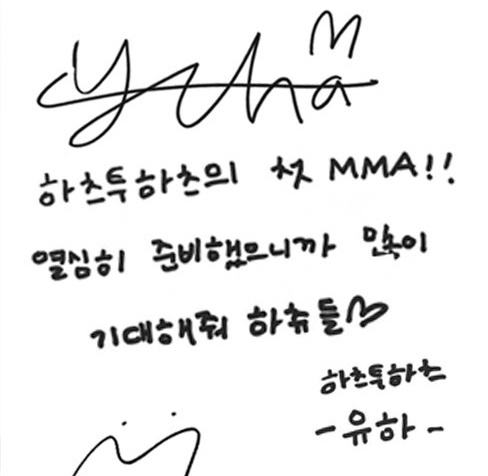 Yuha
하츠투하츠의 첫 MMA!!
열심히 준비했으니까 많이
기대해줘 하츄들♡
하츠투하츠
-유하-